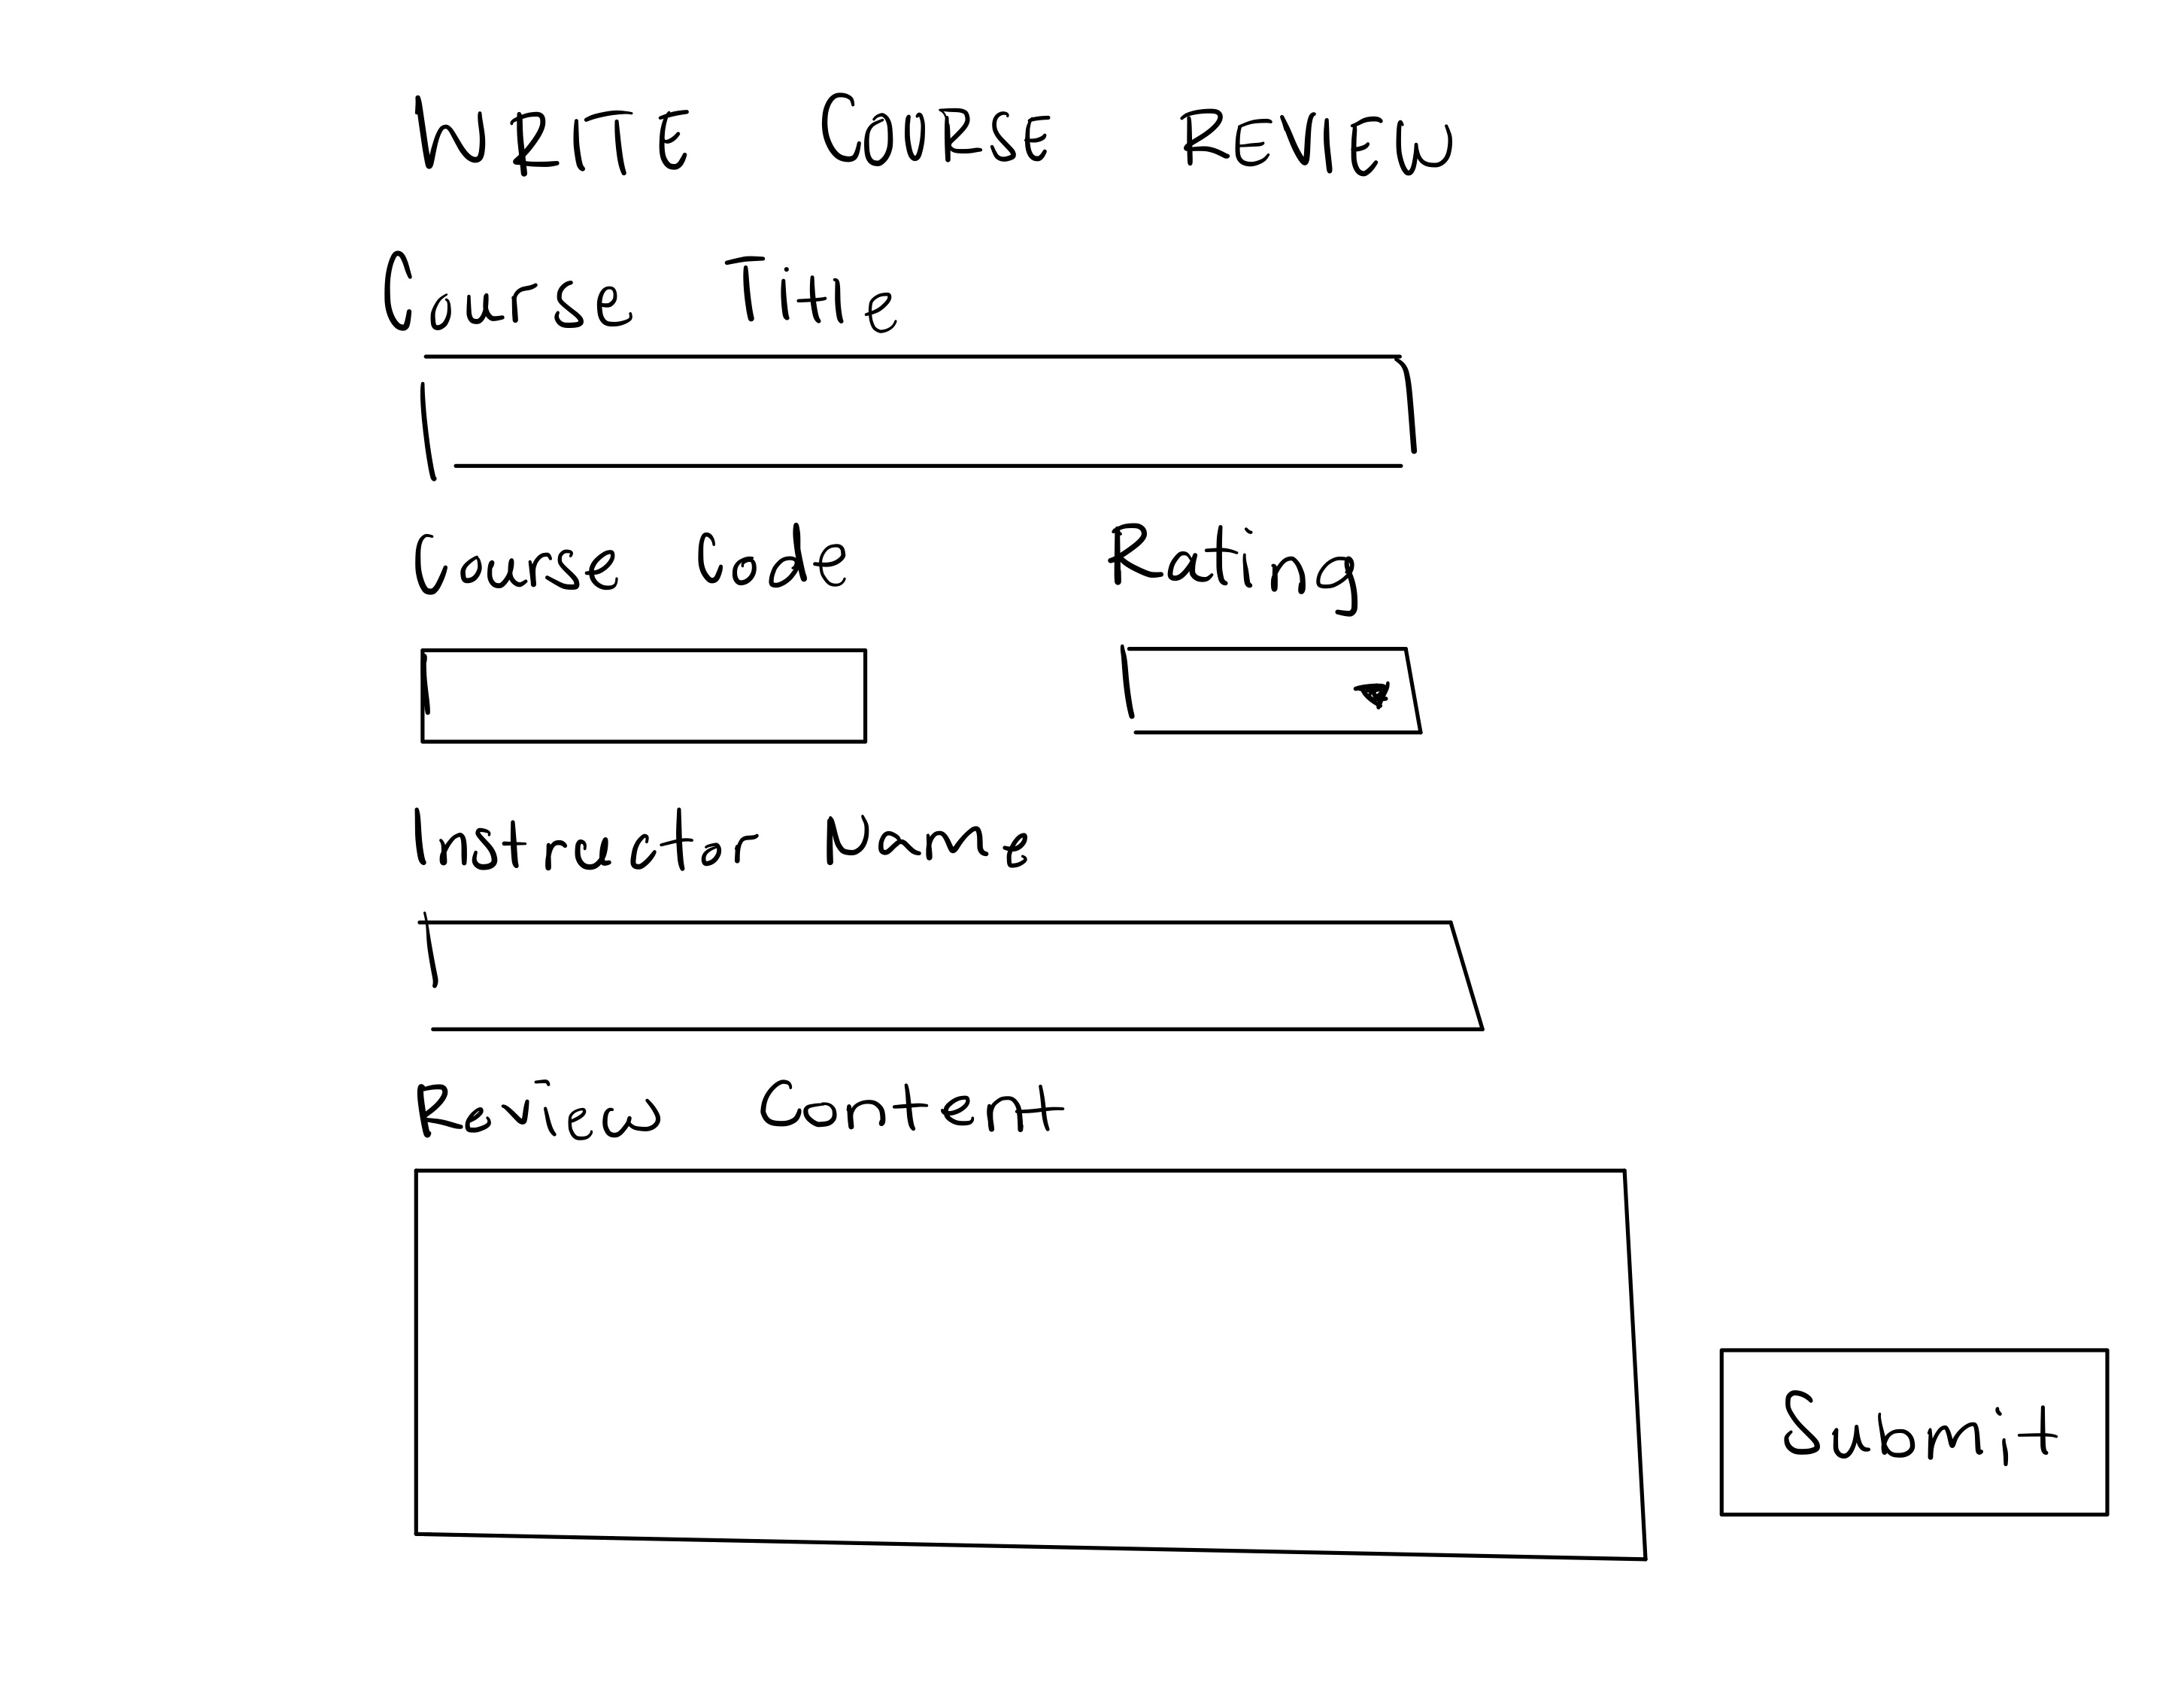 WRITE COURSE REVIEW
Course Title
Course Code Rating
Instructor Name
Review Content
Submit